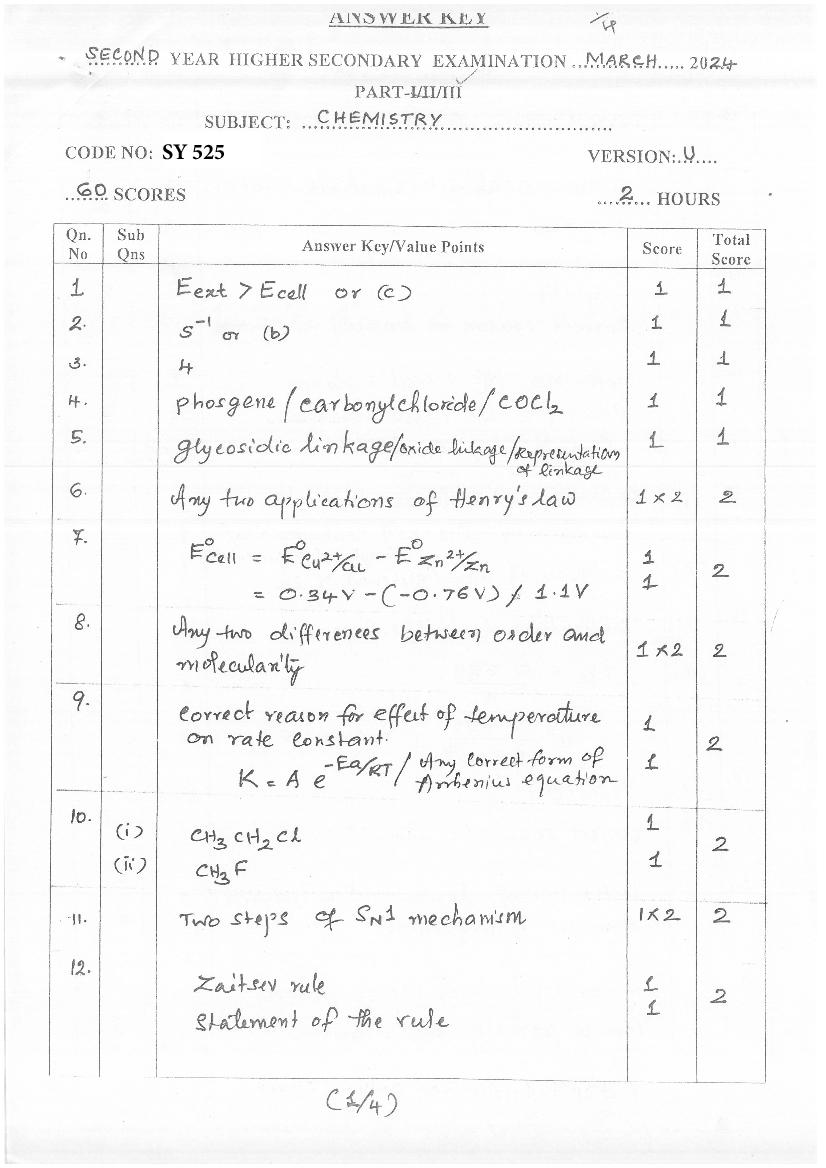 ANSWER KEY
SECOND YEAR HIGHER SECONDARY EXAMINATION ...MARCH..... 2024
PART-I/II/III
SUBJECT: ...CHEMISTRY...
CODE NO: SY 525
VERSION:.U....
...60... SCORES
...2... HOURS
Qn. No Sub Qns Answer Key/Value Points Score Total Score
1 Eext > Ecell or (c) 1 1
2. S⁻¹ or (b) 1 1
3. 4 1 1
4. phosgene / carbonylchloride / COCl₂ 1 1
5. glycosidic linkage/oxide linkage/Representation of linkage 1 1
6. Any two applications of Henry's law 1 × 2 2
7. E⁰cell = E⁰Cu²⁺/Cu - E⁰Zn²⁺/Zn 1
= 0.34V - (-0.76V) / 1.1V 1 2
8. Any two differences between order and
molecularity 1 × 2 2
9. Correct reason for effect of temperature
on rate constant. 1
K = A e^-Ea/RT / Any correct form of Arrhenius equation 1 2
10. (i) CH₃CH₂Cl 1
(ii) CH₃F 1 2
11. Two steps of SN1 mechanism 1×2 2
12. Zaitsev rule 1
Statement of the rule 1 2
(1/4)